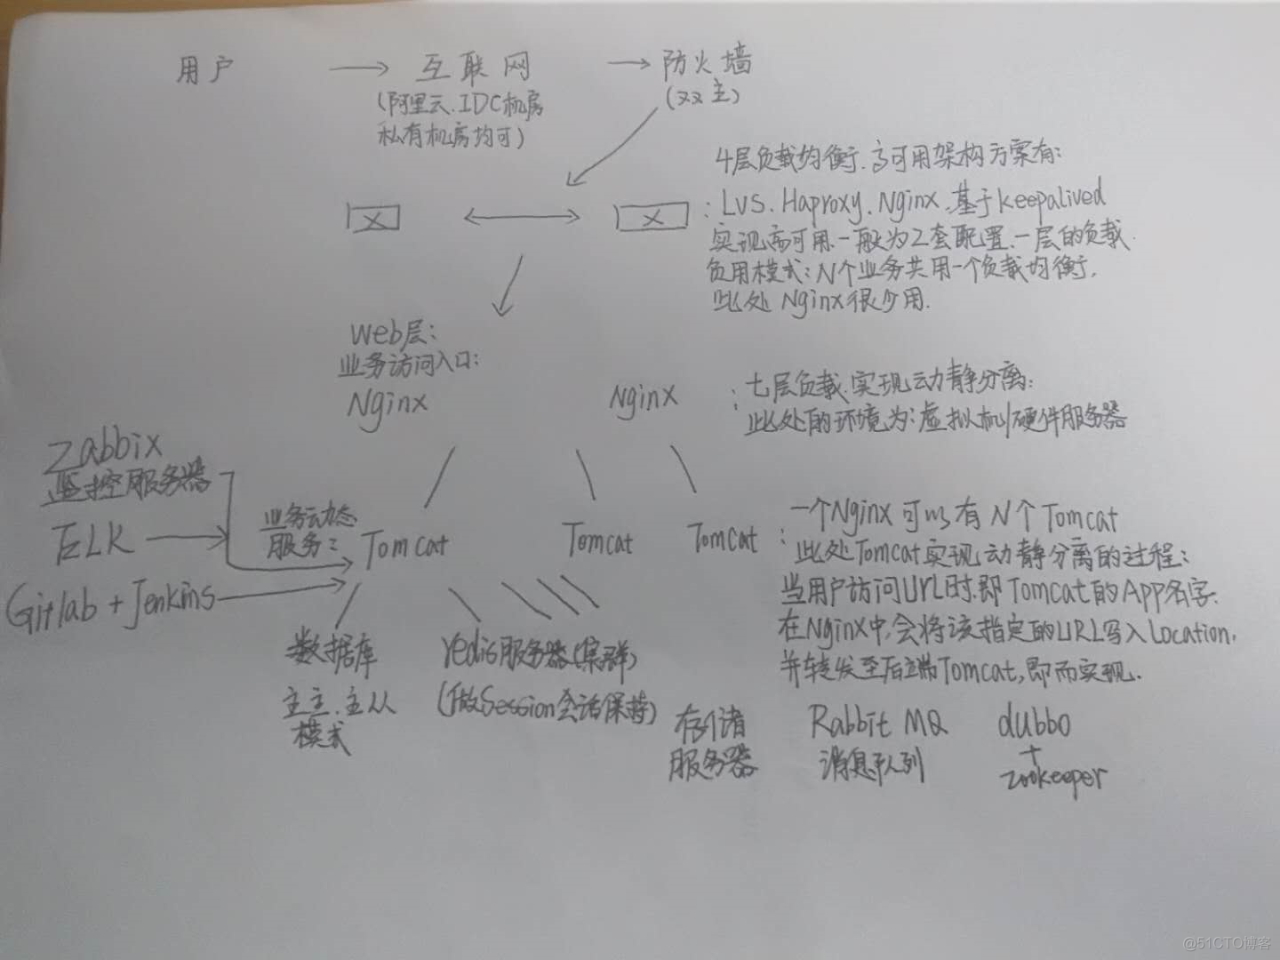 用户 → 互联网 → 防火墙
(阿里云.IDC机房 (双主)
私有机房均可)
4层负载均衡.高可用架构方案有:
X ↔ X : LVS.Haproxy.Nginx.基于keepalived
实现高可用.一般为2套配置.一层的负载.
负用模式:N个业务共用一个负载均衡.
此处Nginx很少用.
Web层:
业务访问入口:
Nginx Nginx : 七层负载.实现动静分离:
此处的环境为:虚拟机/硬件服务器
Zabbix
监控服务器
ELK
Gitlab+Jenkins
业务动态
服务:
Tomcat Tomcat Tomcat : 一个Nginx可以有N个Tomcat
此处Tomcat实现动静分离的过程:
当用户访问URL时.即Tomcat的App名字.
在Nginx中,会将该指定的URL写入Location,
并转发至后端Tomcat,即而实现.
数据库
主主.主从
模式
redis服务器(集群)
(做Session会话保持)
存储
服务器
Rabbit MQ
消息队列
dubbo
+
zookeeper
@51CTO博客